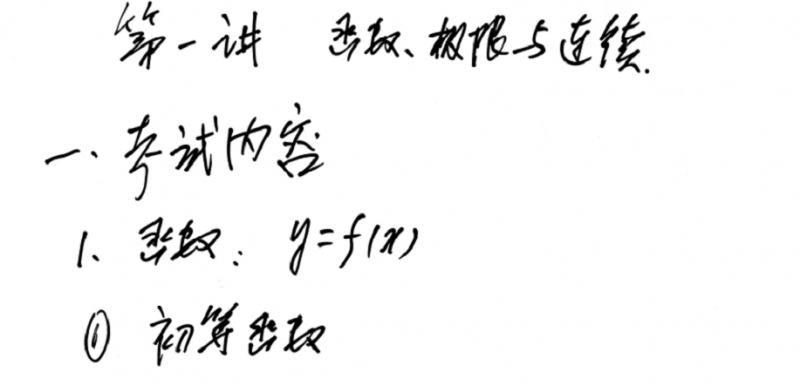 第一讲 函数、极限与连续.
一、考试内容
1、函数: y=f(x)
① 初等函数